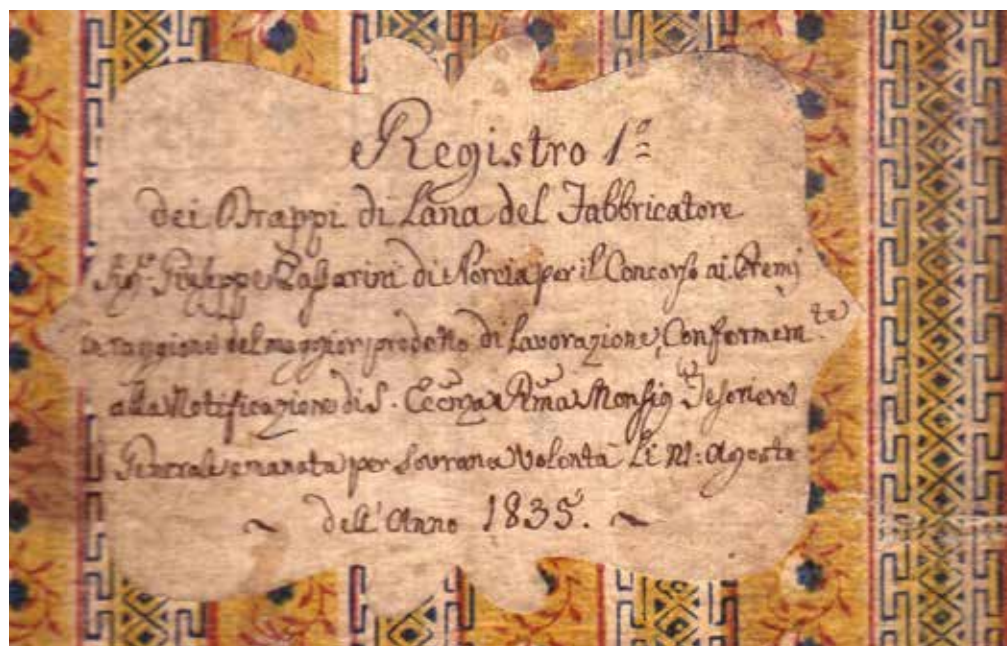 Registro 1º
dei Drappi di Lana del Fabbricatore
Sigr. Giuseppe di Norcia per il Concorso ai Premj
in raggione del maggior prodotto di Lavorazione, Conformemte
alla Notificazione di S. Eccnza Rma Monsigr Tesoriere
Generale emanata per Sovrana Volontà Li Agosto
dell' Anno 1835.